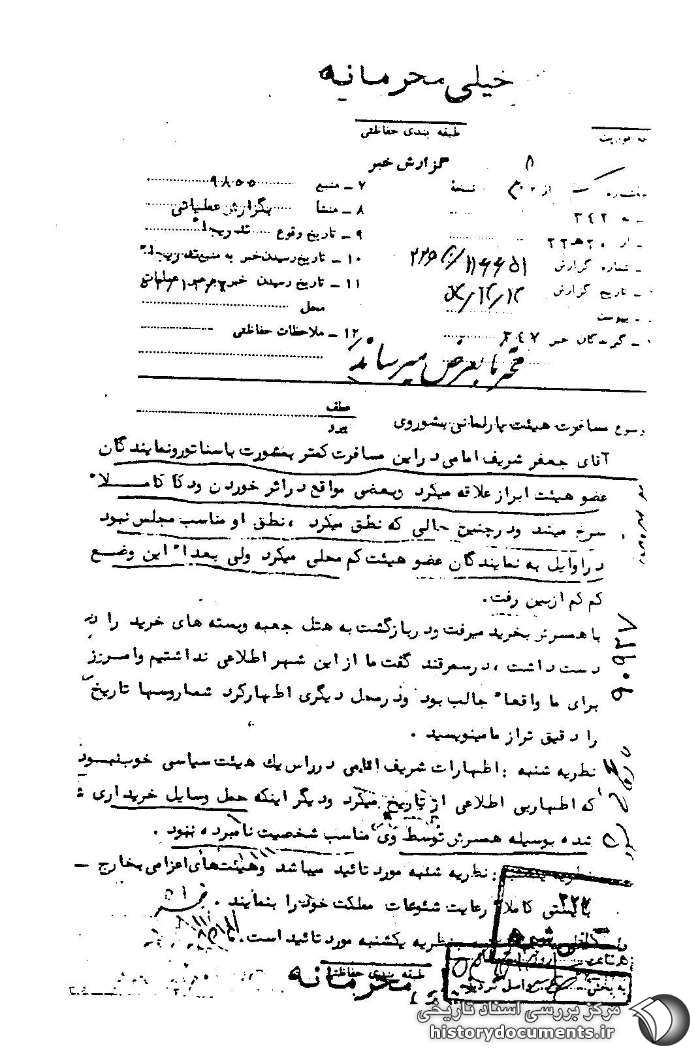 خیلی محرمانه
طبقه بندی حفاظتی
گزارش خبر
از نسخهٔ
۷ ـ منبع ۹۸۵۵
به ۳۴۲
۸ ـ منشأ
از ۲۰ هـ ۲۲
۹ ـ تاریخ وقوع
شماره گزارش
۱۰ ـ تاریخ رسیدن خبر به منبع
تاریخ گزارش
۱۱ ـ تاریخ رسیدن خبر
محل
پیوست
گیرندگان خبر ۳۴۷
۱۲ ـ ملاحظات حفاظتی
محترماً بعرض میرساند
عطف
مسافرت هیئت پارلمانی بشوروی
پیرو
آقای جعفر شریف امامی در این مسافرت کمتر بمشورت با سناتور و نمایندگان
عضو هیئت ابراز علاقه میکرد و بعضی مواقع در اثر خوردن ودکا کاملا"
سرخ میشد و در چنین حالی که نطق میکرد ، نطق او مناسب مجلس نبود
در اوایل به نمایندگان عضو هیئت کم محلی میکرد ولی بعدا" این وضع
کم کم از بین رفت .
با همسرش بخرید میرفت و در بازگشت به هتل جعبه و بسته های خرید را در
دست داشت ، در سمرقند گفت ما از این شهر اطلاعی نداشتیم و امروز
برای ما واقعا" جالب بود و در محل دیگری اظهار کرد شما روسها تاریخ
را دقیق تر از ما مینویسید .
نظریه شنبه : اظهارات شریف امامی در راس یک هیئت سیاسی خوب نبود
که اظهار بی اطلاعی از تاریخ میکرد و دیگر اینکه حمل وسایل خریداری
شده بوسیله همسرش توسط وی مناسب شخصیت نامبرده نبود .
نظریه یکشنبه : نظریه شنبه مورد تائید میباشد و هیئت‌های اعزامی بخارج
بایستی کاملا" رعایت شئونات مملکت خود را بنمایند .
نظریه یکشنبه مورد تائید است .
۹۰۹۳۷
۳۲۲
به بخش واصل گردید
طبقه بندی حفاظتی
محرمانه
مرکز بررسی اسناد تاریخی
historydocuments.ir